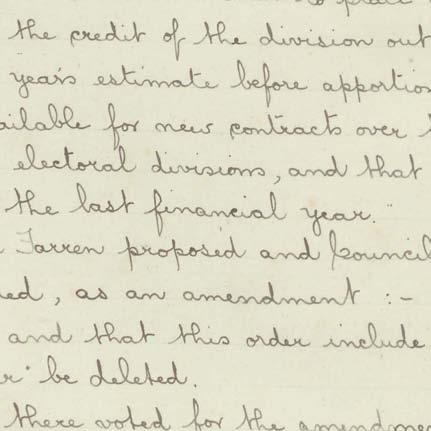 to place
the credit of the division out
year's estimate before apportion
ailable for new contracts over
electoral divisions, and that
the last financial year."
Farren proposed and Council
ed, as an amendment :-
and that this order include
r" be deleted.
there voted for the amendme